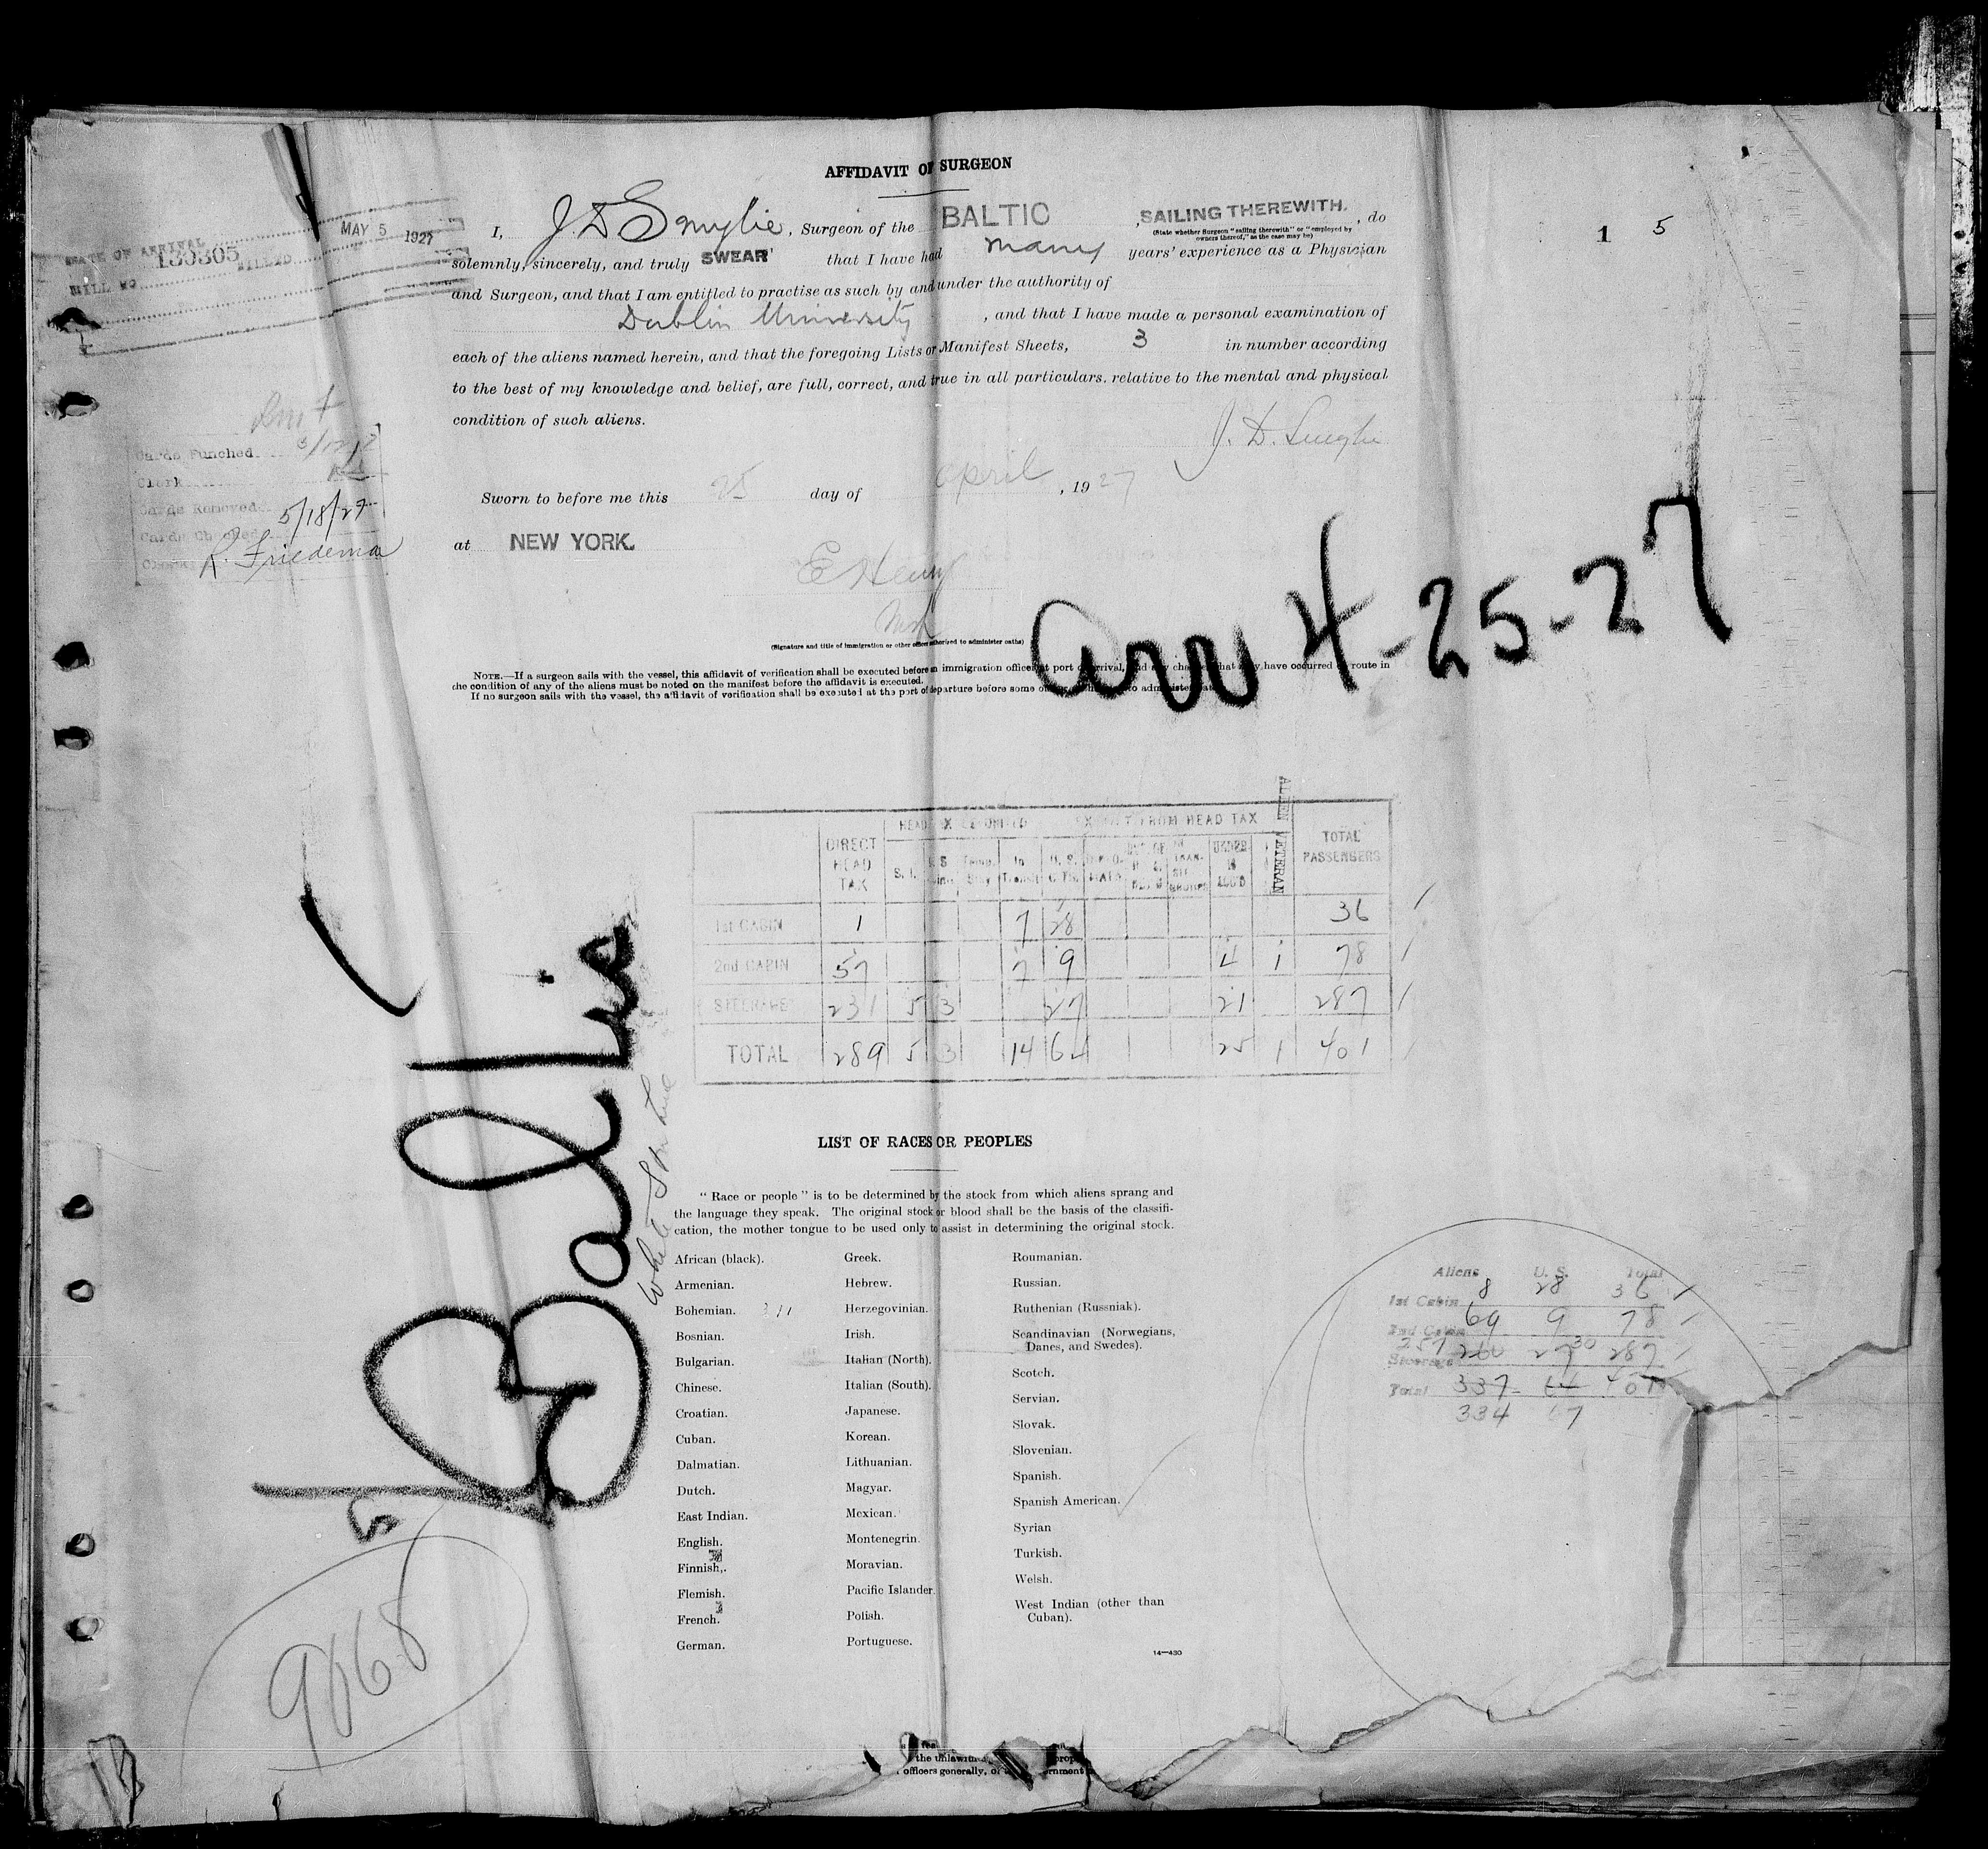 AFFIDAVIT OF SURGEON
I, J D Smylie, Surgeon of the BALTIC, SAILING THEREWITH. , do
(State whether Surgeon "sailing therewith" or "employed by owners thereof," as the case may be)
solemnly, sincerely, and truly SWEAR that I have had many years' experience as a Physician
and Surgeon, and that I am entitled to practise as such by and under the authority of
Dublin University , and that I have made a personal examination of
each of the aliens named herein, and that the foregoing Lists or Manifest Sheets, 3 in number according
to the best of my knowledge and belief, are full, correct, and true in all particulars. relative to the mental and physical
condition of such aliens.
J. D. Smylie
Sworn to before me this 25 day of April , 1927
at NEW YORK.
E Henry
(Signature and title of immigration or other officer authorized to administer oaths)
NOTE.—If a surgeon sails with the vessel, this affidavit of verification shall be executed before an immigration officer at port of arrival, and any change that may have occurred route in
the condition of any of the aliens must be noted on the manifest before the affidavit is executed.
If no surgeon sails with the vessel, the affidavit of verification shall be executed at the port of departure before some to administer
1 5
MAY 5 1927
DATE OF ARRIVAL
130305
BILL NO
Cards Punched
Clerk
Cards Removed 5/18/27
Cards Checked
R. Friedema
arr 4-25-27
Baltic
White Star Line
5
9668
HEAD TAX EXEMPT FROM HEAD TAX
DIRECT HEAD TAX S. I. In Transit U. S. UNDER 16 ALIEN VETERAN TOTAL PASSENGERS
1st CABIN 1 7 28 36
2nd CABIN 57 7 9 4 1 78
STEERAGE 231 5 3 27 21 287
TOTAL 289 5 3 14 64 25 1 401
LIST OF RACES OR PEOPLES
" Race or people " is to be determined by the stock from which aliens sprang and
the language they speak. The original stock or blood shall be the basis of the classifi-
cation, the mother tongue to be used only to assist in determining the original stock.
African (black).
Armenian.
Bohemian.
Bosnian.
Bulgarian.
Chinese.
Croatian.
Cuban.
Dalmatian.
Dutch.
East Indian.
English.
Finnish.
Flemish.
French.
German.
Greek.
Hebrew.
Herzegovinian.
Irish.
Italian (North).
Italian (South).
Japanese.
Korean.
Lithuanian.
Magyar.
Mexican.
Montenegrin.
Moravian.
Pacific Islander.
Polish.
Portuguese.
Roumanian.
Russian.
Ruthenian (Russniak).
Scandinavian (Norwegians,
Danes, and Swedes).
Scotch.
Servian.
Slovak.
Slovenian.
Spanish.
Spanish American.
Syrian
Turkish.
Welsh.
West Indian (other than
Cuban).
14—430
Aliens U. S. Total
1st Cabin 8 28 36
2nd Cabin 69 9 78
Steerage 257 260 27 30 287
Total 337 64 401
334 67
officers generally, of